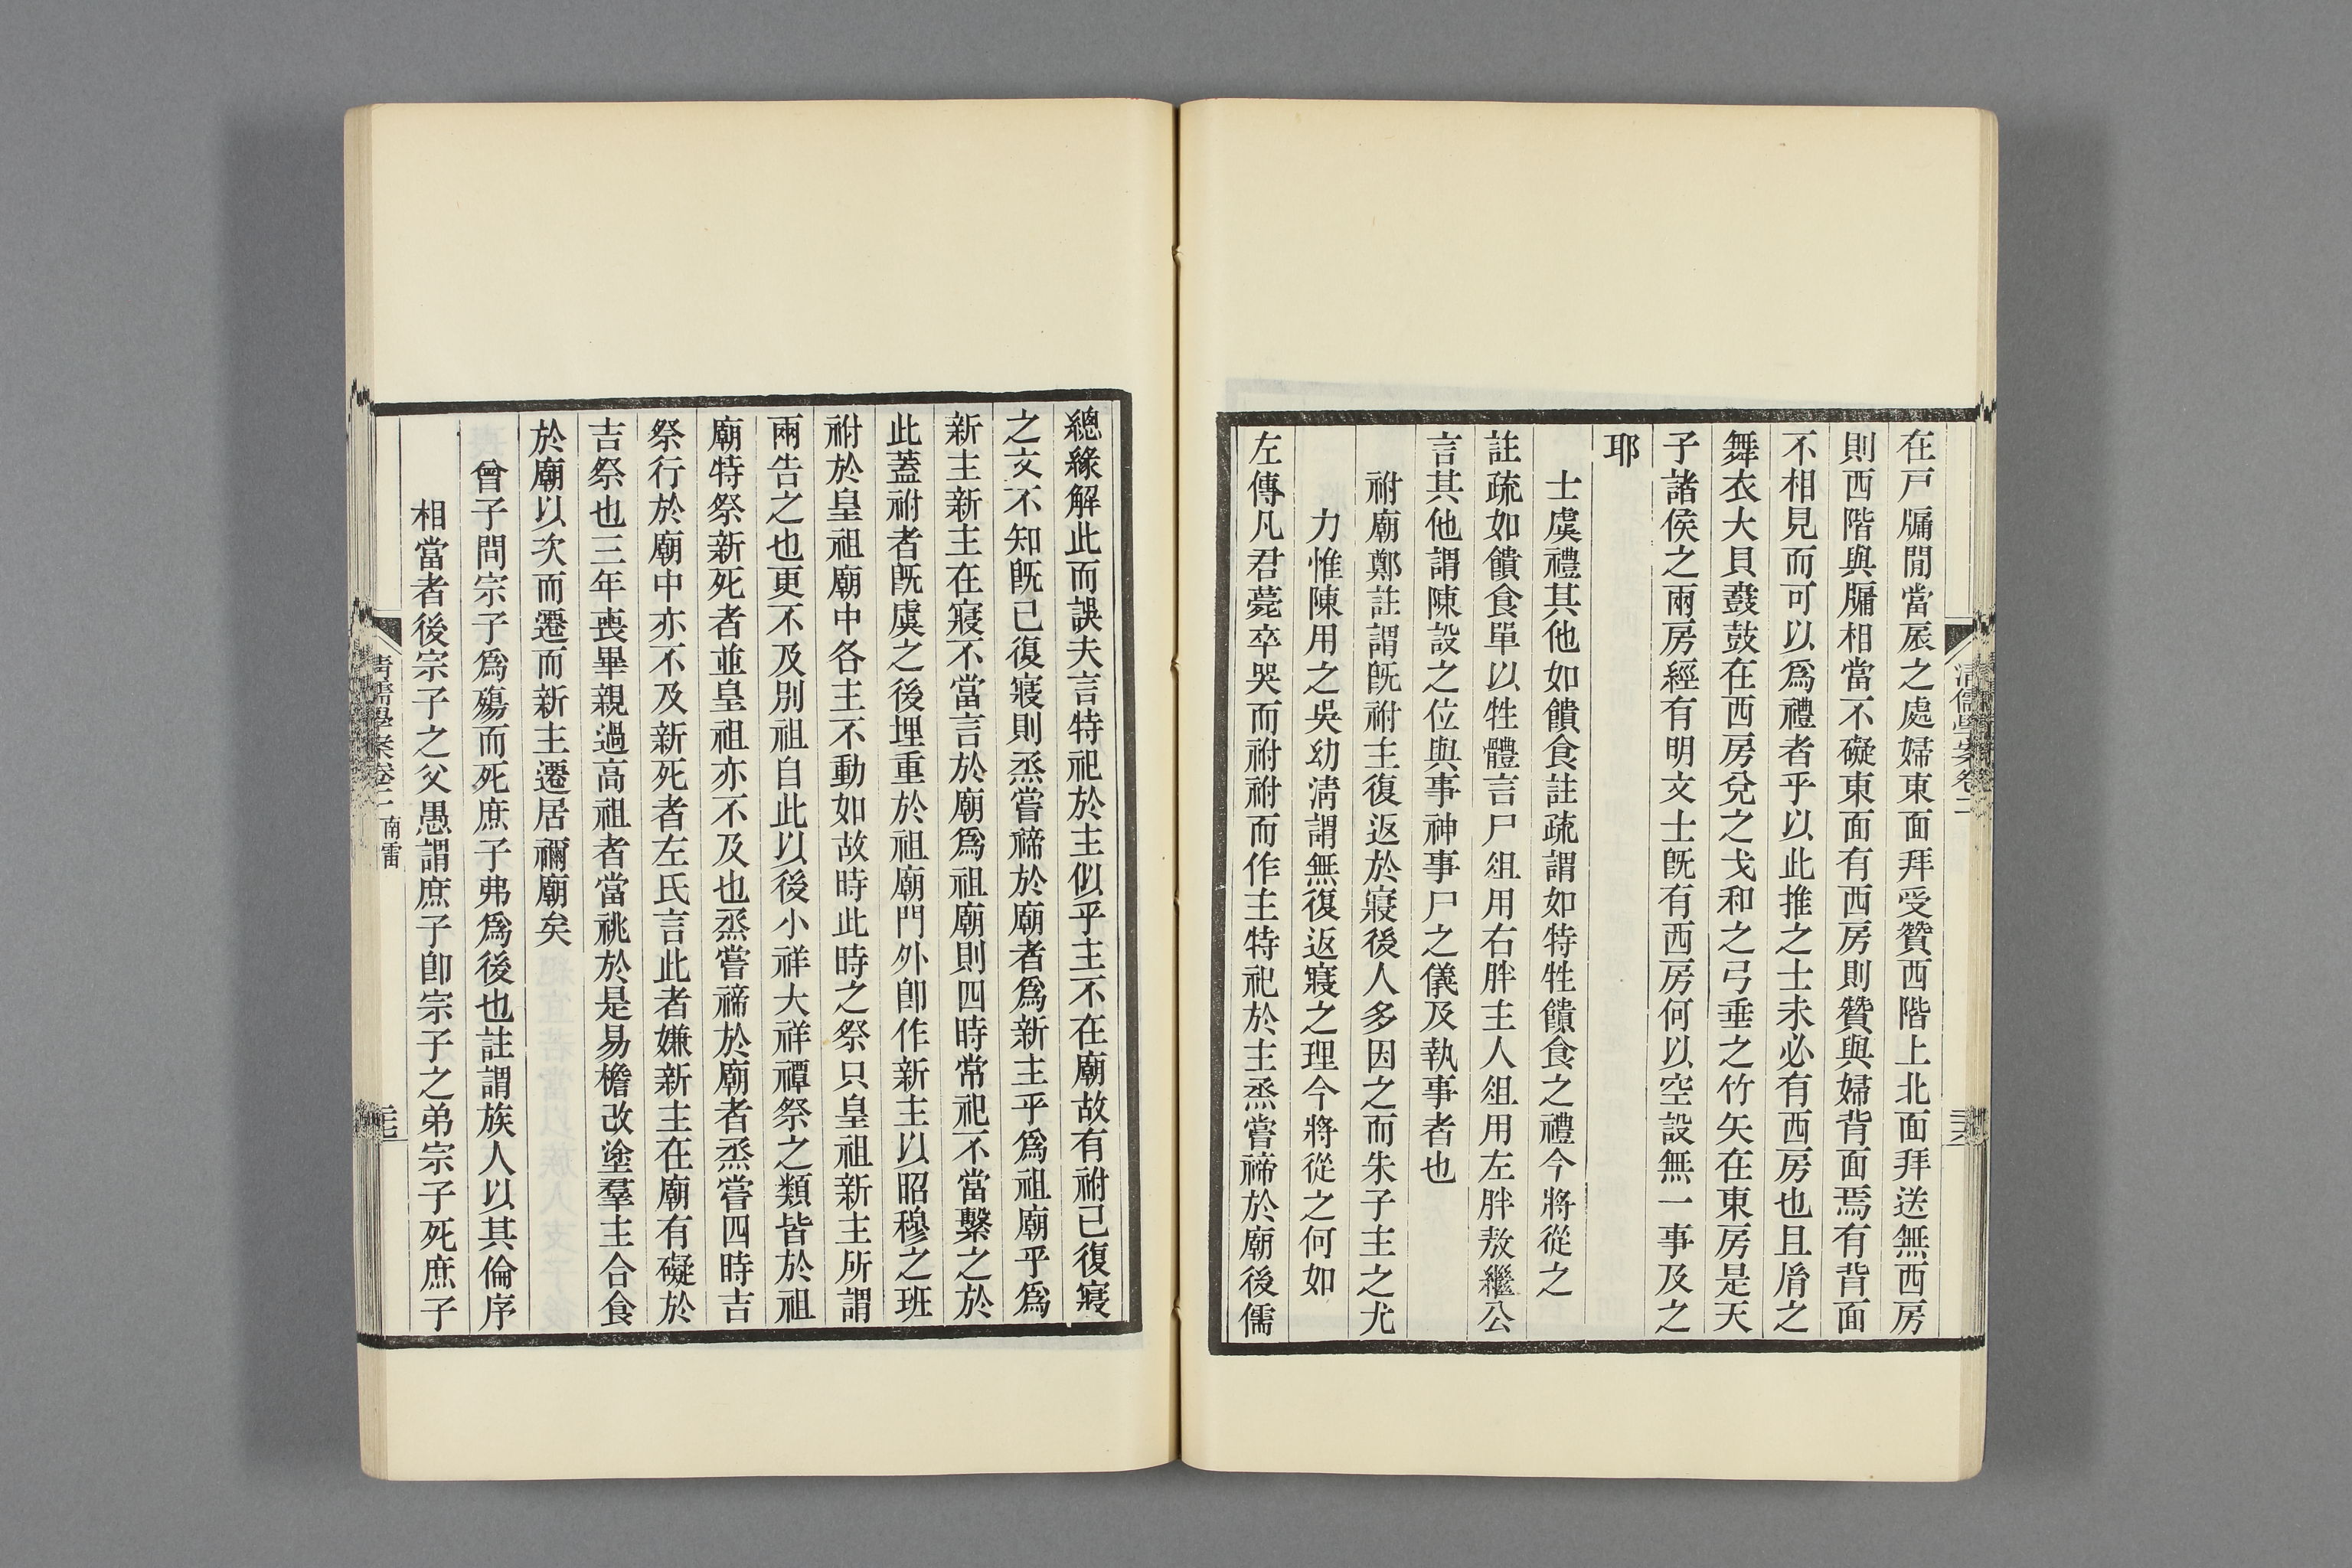 清儒學案卷二
在戸牖閒當扆之處婦東面拜受贊西階上北面拜送無西房
則西階與牖相當不礙東面有西房則贊與婦背面焉有背面
不相見而可以爲禮者乎以此推之士未必有西房也且胤之
舞衣大貝鼖鼓在西房兌之戈和之弓垂之竹矢在東房是天
子諸侯之兩房經有明文士旣有西房何以空設無一事及之
耶
士虞禮其他如饋食註疏謂如特牲饋食之禮今將從之
註疏如饋食單以牲體言尸俎用右胖主人俎用左胖敖繼公
言其他謂陳設之位與事神事尸之儀及執事者也
祔廟鄭註謂旣祔主復返於寢後人多因之而朱子主之尤
力惟陳用之吳幼淸謂無復返寢之理今將從之何如
左傳凡君薨卒哭而祔祔而作主特祀於主烝嘗禘於廟後儒
總緣解此而誤夫言特祀於主似乎主不在廟故有祔已復寢
之文不知旣已復寢則烝嘗禘於廟者爲新主乎爲祖廟乎爲
新主新主在寢不當言於廟爲祖廟則四時常祀不當繫之於
此蓋祔者旣虞之後埋重於祖廟門外卽作新主以昭穆之班
祔於皇祖廟中各主不動如故時此時之祭只皇祖新主所謂
兩告之也更不及別祖自此以後小祥大祥禫祭之類皆於祖
廟特祭新死者並皇祖亦不及也烝嘗禘於廟者烝嘗四時吉
祭行於廟中亦不及新死者左氏言此者嫌新主在廟有礙於
吉祭也三年喪畢親過高祖者當祧於是易檐改塗羣主合食
於廟以次而遷而新主遷居禰廟矣
曾子問宗子爲殤而死庶子弗爲後也註謂族人以其倫序
相當者後宗子之父愚謂庶子卽宗子之弟宗子死庶子
清儒學案卷二 南雷